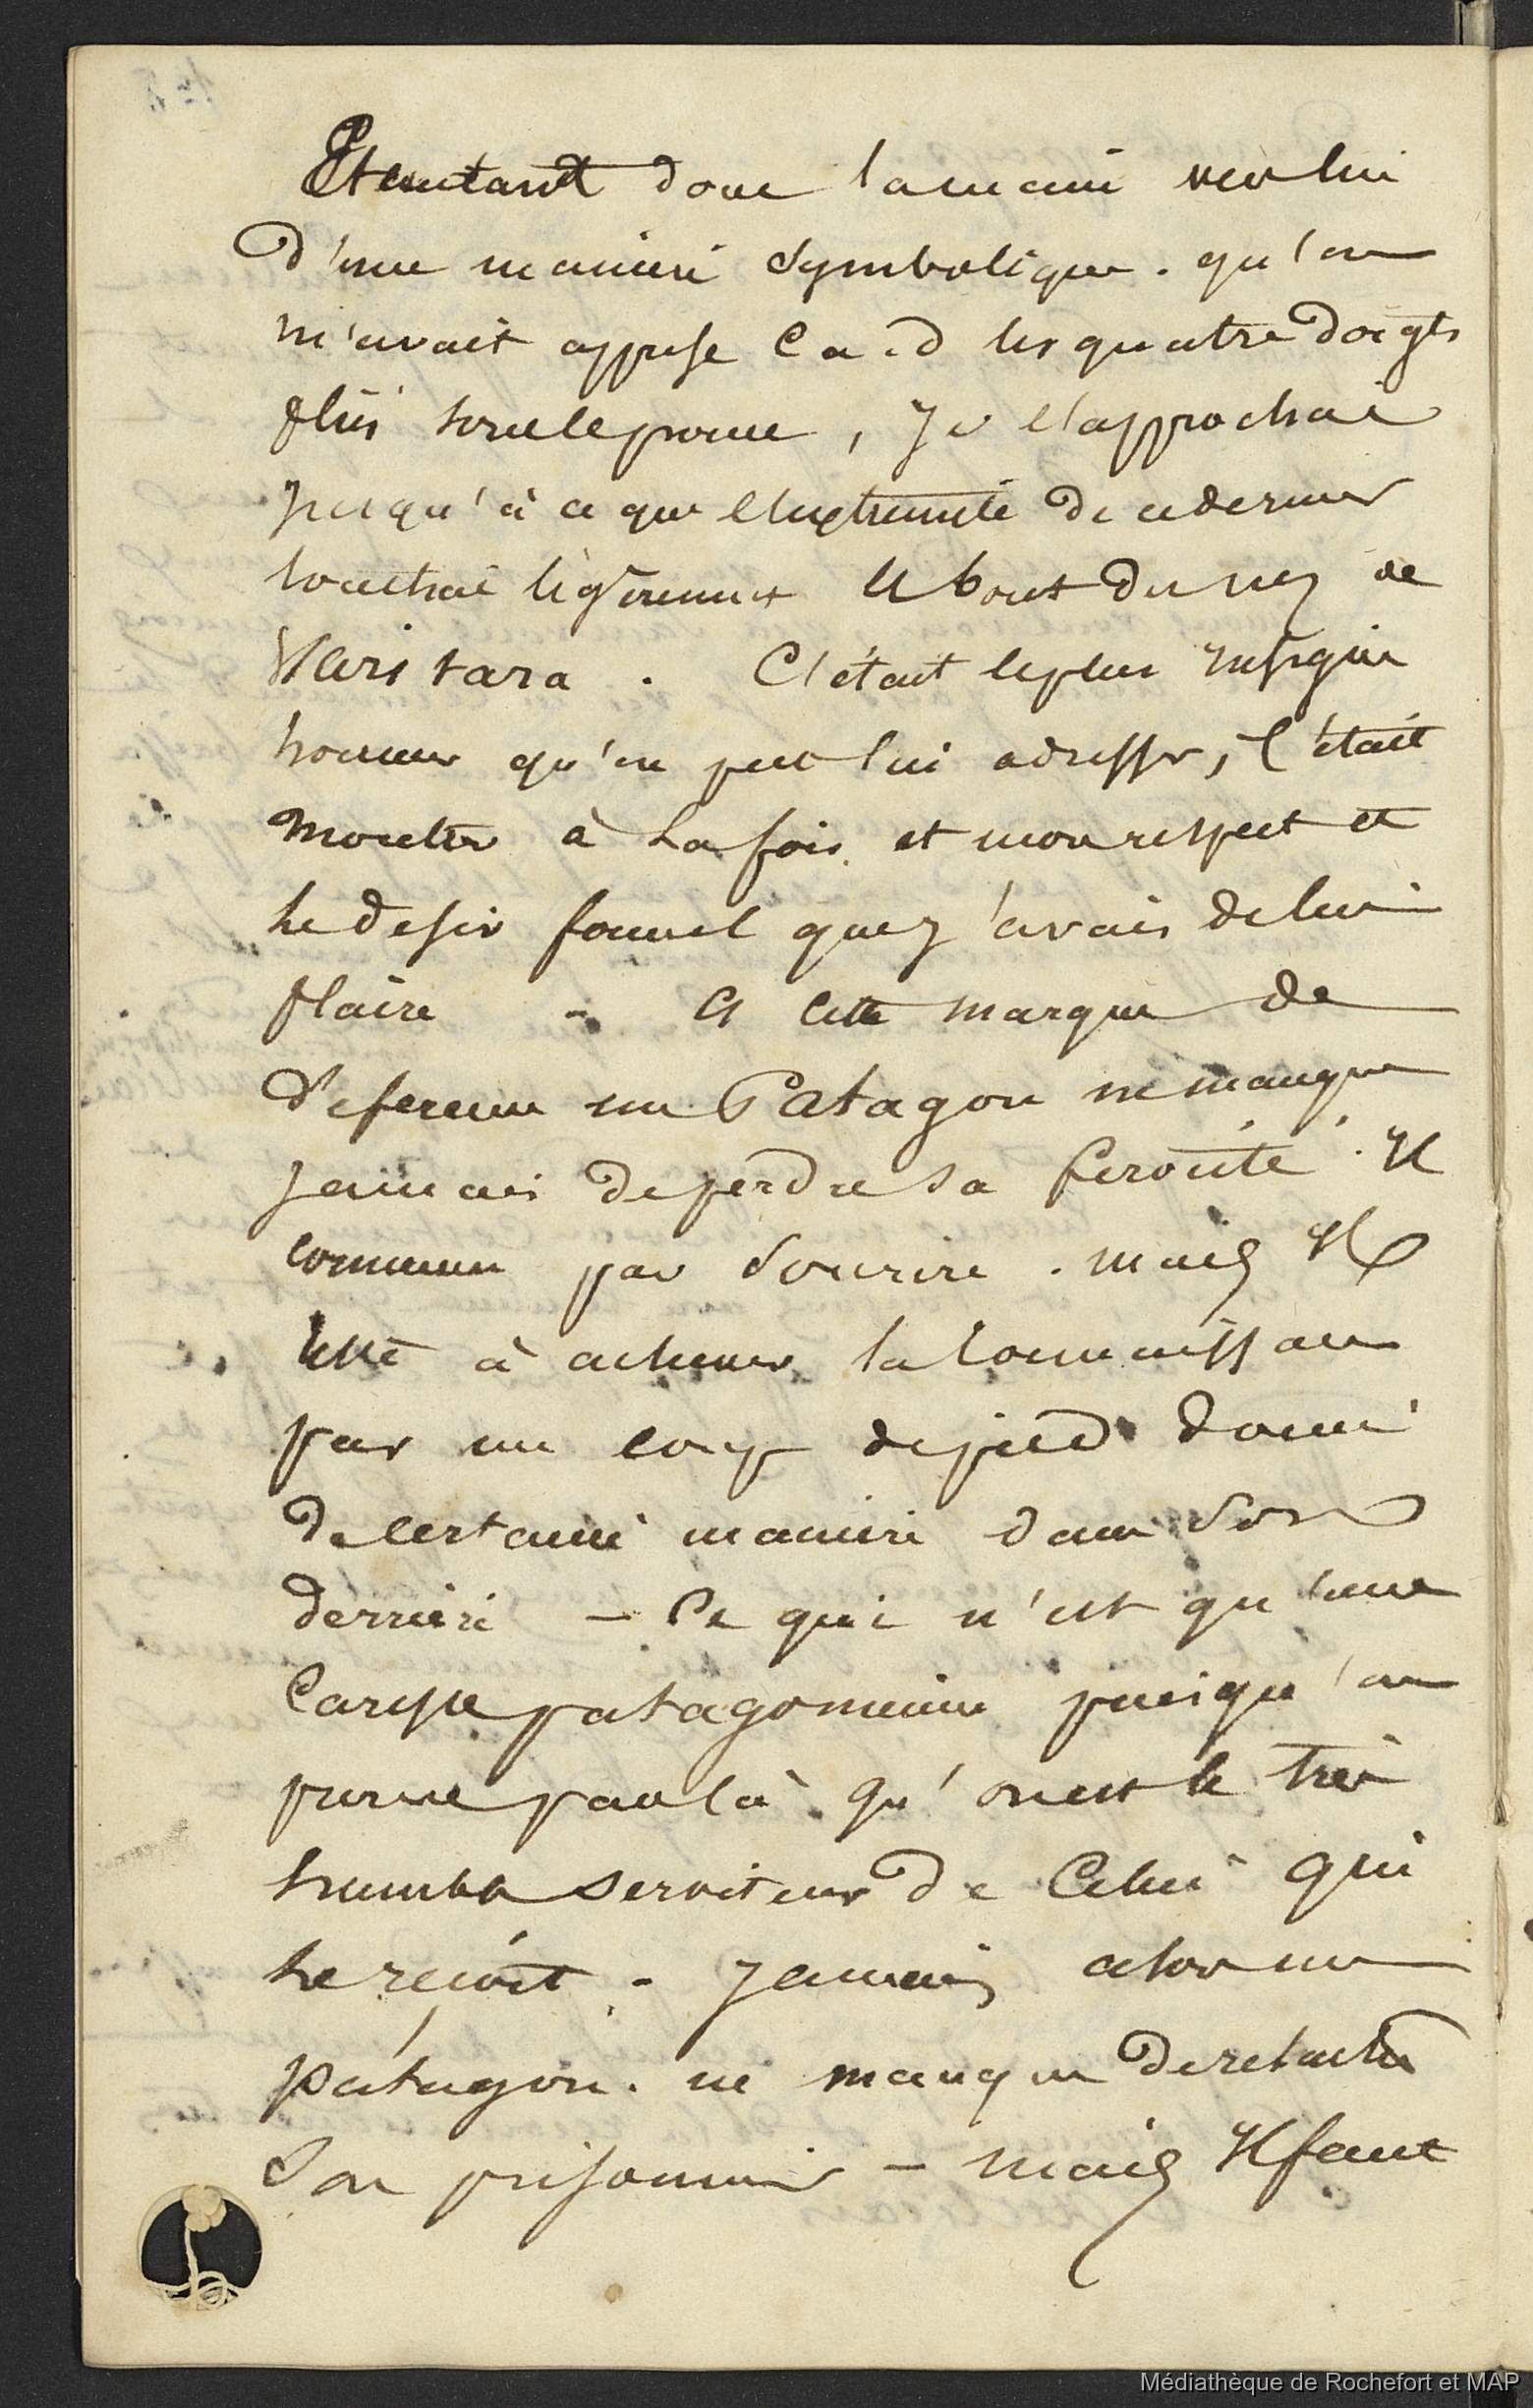 Etendant donc la main vers lui
d'une maniere symbolique. qu'on
m'avait apprise c.a.d les quatre doigts
pliés sous le pouce, Je l'approchai
jusqu'à ce que l'extremité de ce dernier
touchat légèrement le bout du nez de
C'était le plus insigne
honneur qu'on put lui adresser, C'était
montrer à la fois et mon respect et
le desir formel que j'avais de lui
plaire - A cette marque de
deference un Patagon ne manque
jamais de perdre sa ferocité. Il
commence par sourire. mais Il
reste à achever la connaissance
par un coup de pied donné
de certaine maniere dans son
derrière - Ce qui n'est qu'une
Caresse patagonienne puisqu'on
prouve par là qu'on est le très
humble serviteur de Celui qui
le reçoit - Jamais alors un
patagon. ne manque de relacher
son prisonnier - mais Il faut
Médiathèque de Rochefort et MAP